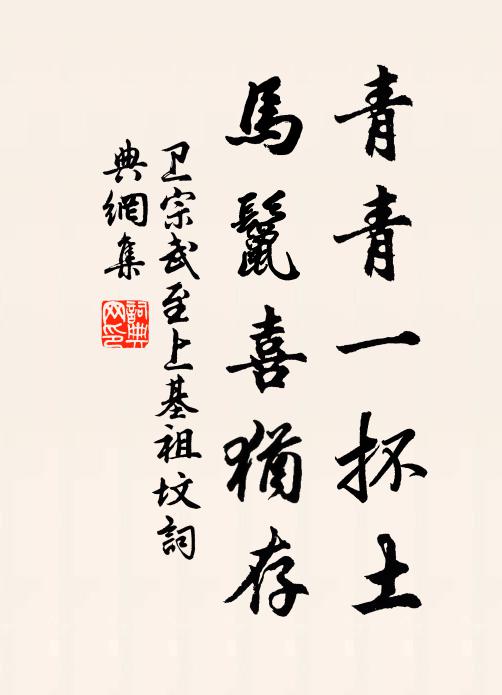 青青一抔土
馬鬣喜猶存
卫宗武至上基祖坟詞
典網集
詞典
网印